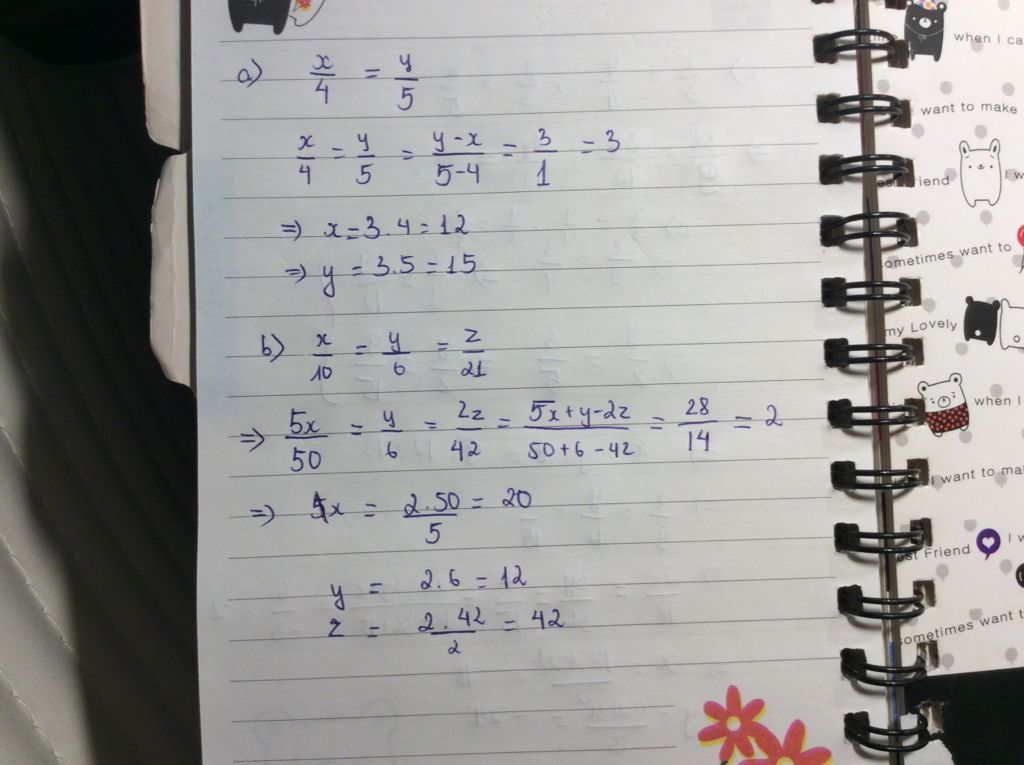 a) x/4 = y/5
x/4 = y/5 = y-x/5-4 = 3/1 = 3
=> x = 3.4 = 12
=> y = 3.5 = 15
b) x/10 = y/6 = z/21
=> 5x/50 = y/6 = 2z/42 = 5x+y-2z/50+6-42 = 28/14 = 2
=> x = 2.50/5 = 20
y = 2.6 = 12
z = 2.42/2 = 42
when I ca
want to make
friend
I w
ometimes want to
my Lovely
when I
I want to ma
est Friend
I w
ometimes want t